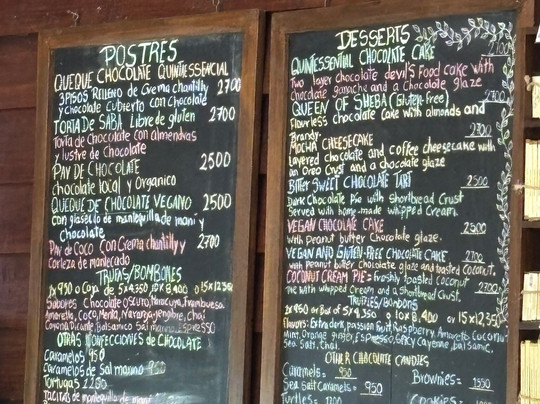 POSTRES
QUEQUE CHOCOLATE QUINTESSENCIAL
3 PISOS RELLENO de Crema chantilly 2700
y chocolate cubierto con Chocolate
TORTA DE SABA Libre de gluten 2700
Torta de Chocolate con almendras
y lustre de Chocolate
PAY DE CHOCOLATE 2500
chocolate local y organico
QUEQUE DE CHOCOLATE VEGANO 2500
con glaseado de mantequilla de maní y
chocolate
PAY de COCO con Crema chantilly y 2700
Corteza de mantecado
TRUFAS/BOMBONES
1x 950 o Caja de 5x 4.350 10x 8,400 o 15x 12,350
Sabores Chocolate oscuro, Maracuya, Frambuesa
Amoretto, Coco, Menta, Naranja, jengibre, Chai
Balsamico Sal marina, Espresso
OTRAS CONFECCIONES de CHOCOLATE
Caramelos 950
Caramelos de Sal marina 950
Tortugas 2250
Tacitas de mantequilla de maní
DESSERTS
QUINTESSENTIAL CHOCOLATE CAKE 2700
Two layer chocolate devil's food cake with
Chocolate ganache and a Chocolate glaze
QUEEN OF SHEBA (Gluten-Free) 2700
Flourless chocolate Cake with almonds and
Brandy
MOCHA CHEESECAKE 2700
Layered chocolate and coffee cheesecake with
an Oreo Crust and a chocolate glaze
BITTER SWEET CHOCOLATE TART 2500
Dark Chocolate Pie with Shortbread Crust
Served with home-made whipped Cream
VEGAN CHOCOLATE CAKE 2500
With Peanut butter Chocolate glaze.
VEGAN AND GLUTEN-FREE CHOCOLATE CAKE 2700
with Peanut butter Chocolate glaze and toasted Coconut.
COCONUT CREAM PIE = Freshly toasted Coconut 2700
Pie with whipped Cream and a Shortbread Crust.
TRUFFLES/BONBONS
1x 950 or Box of 5x 4.350 10x 8,400 or 15x 12,350
Flavors: Extra dark, passion fruit, Raspberry, Amaretto, Coconut
Mint, Orange ginger, Espresso, Balsamic,
Sea Salt, Chai.
OTHER CHOCOLATE CANDIES
Caramels = 950
Sea Salt Caramels = 950
Turtles =
Brownies = 1550
Cookies =